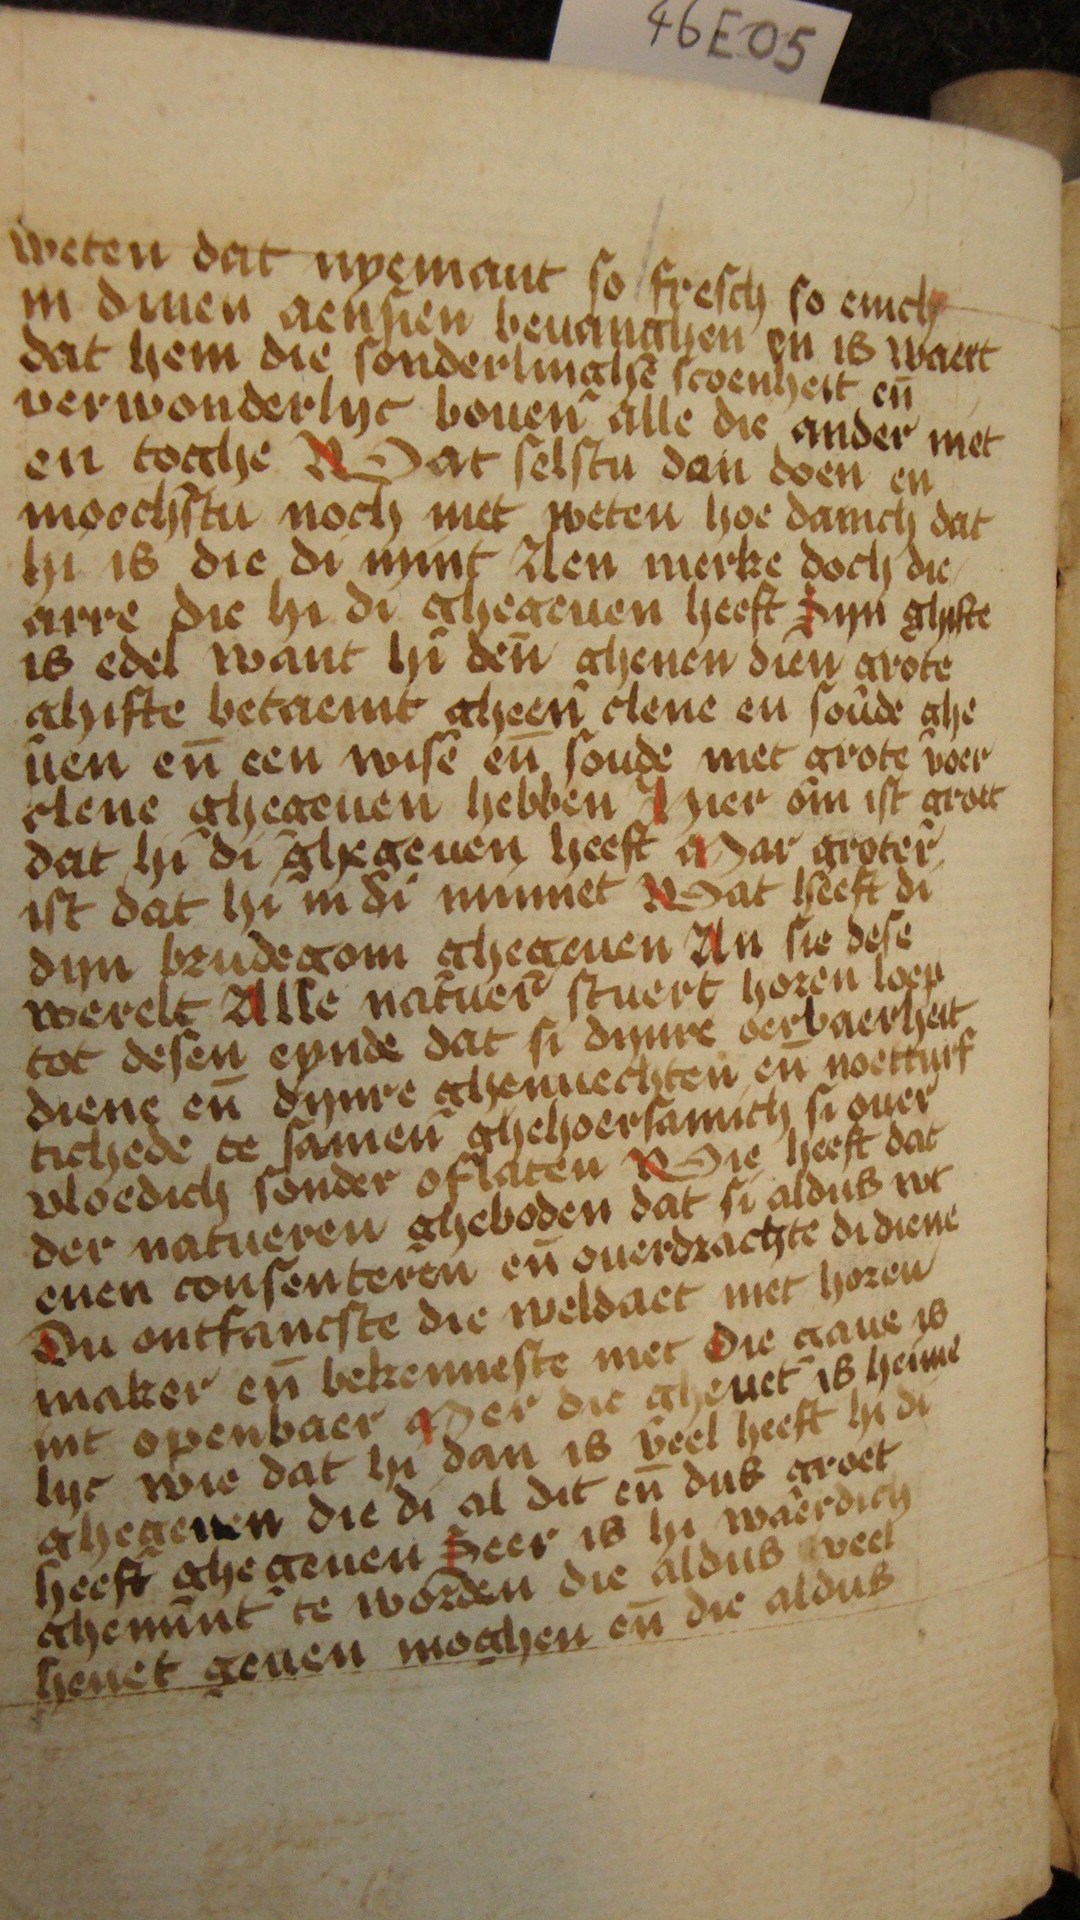 46E05
weten dat nyemant so fresch so enich
in dinen aensien beuanghen en is waert
dat hem die sonderlinghē scoenheit eñ
verwonderlijc bouen alle die ander niet
en tocghe Wat selstu dan doen en
moochstu noch niet weten hoe danich dat
hi is die di mint Aen merke doch die
arre die hi di ghegeuen heeft Sijn ghifte
is edel want hi den ghenen dien grote
ghifte betaemt gheen clene en soude ghe
uen eñ een wise eñ soude niet grote voer
clene ghegeuen hebben Hier om ist groet
dat hi di ghegeuen heeft Mar groter
ist dat hi in di minnet Wat heeft di
dijn brudegom ghegeuen An sie dese
werelt Alle natuer stuert horen loep
tot desen eynde dat si dijnre oerbaerheit
diene eñ dijnre ghenuechten eñ noetturf
tichede te samen ghehoersamich si ouer
vloedich sonder oflaten Wie heeft dat
der natueren gheboden dat si aldus wt
euen consenteren eñ ouerdrachte di diene
Du ontfancste die weldaet niet horen
maker eñ bekenneste niet Die gaue is
int openbaer Mer die gheuet is heime
lijc wie dat hi dan is veel heeft hi di
ghegeuen die di al dit eñ dus groet
heeft ghegeuen Seer is hi waerdich
ghemint te worden die aldus veel
heuet geuen moghen eñ die aldus